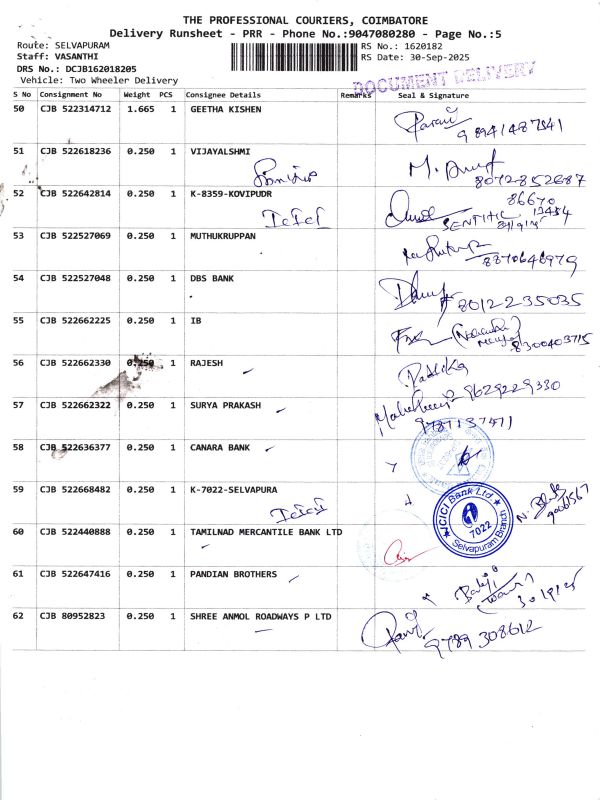 THE PROFESSIONAL COURIERS, COIMBATORE
Delivery Runsheet - PRR - Phone No.:9047080280 - Page No.:5
Route: SELVAPURAM
RS No.: 1620182
Staff: VASANTHI
RS Date: 30-Sep-2025
DRS No.: DCJB162018205
DOCUMENT DELIVERY
Vehicle: Two Wheeler Delivery
S No Consignment No Weight PCS Consignee Details Remarks Seal & Signature
50 CJB 522314712 1.665 1 GEETHA KISHEN
9 8941487541
51 CJB 522618236 0.250 1 VIJAYALSHMI
8072852687
52 CJB 522642814 0.250 1 K-8359-KOVIPUDR
ICICI
SENTHIL
53 CJB 522527069 0.250 1 MUTHUKRUPPAN
8870646979
54 CJB 522527048 0.250 1 DBS BANK
8012235035
55 CJB 522662225 0.250 1 IB
8300403715
56 CJB 522662330 0.250 1 RAJESH
Radhika
9629229330
57 CJB 522662322 0.250 1 SURYA PRAKASH
9787137471
58 CJB 522636377 0.250 1 CANARA BANK
59 CJB 522668482 0.250 1 K-7022-SELVAPURA
ICICI
ICICI Bank Ltd
7022
Selvapuram Branch
60 CJB 522440888 0.250 1 TAMILNAD MERCANTILE BANK LTD
61 CJB 522647416 0.250 1 PANDIAN BROTHERS
Balaji
30/9/25
62 CJB 80952823 0.250 1 SHREE ANMOL ROADWAYS P LTD
9789 308612